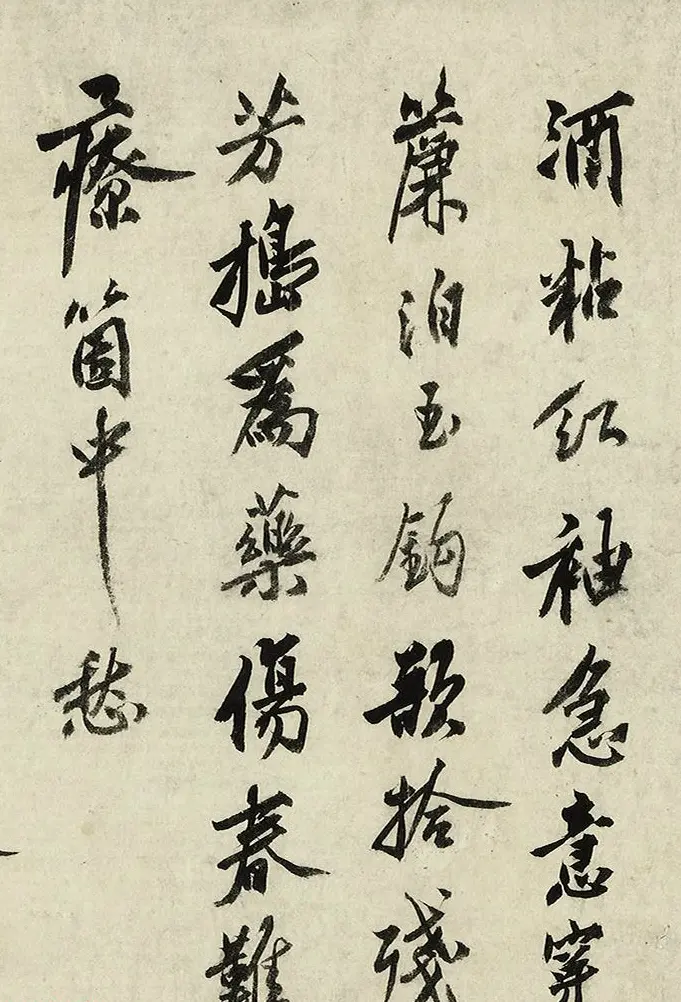 酒粘紅袖急意穿
簾泊玉鉤欲拾殘
芳搗爲藥傷春難
療箇中愁